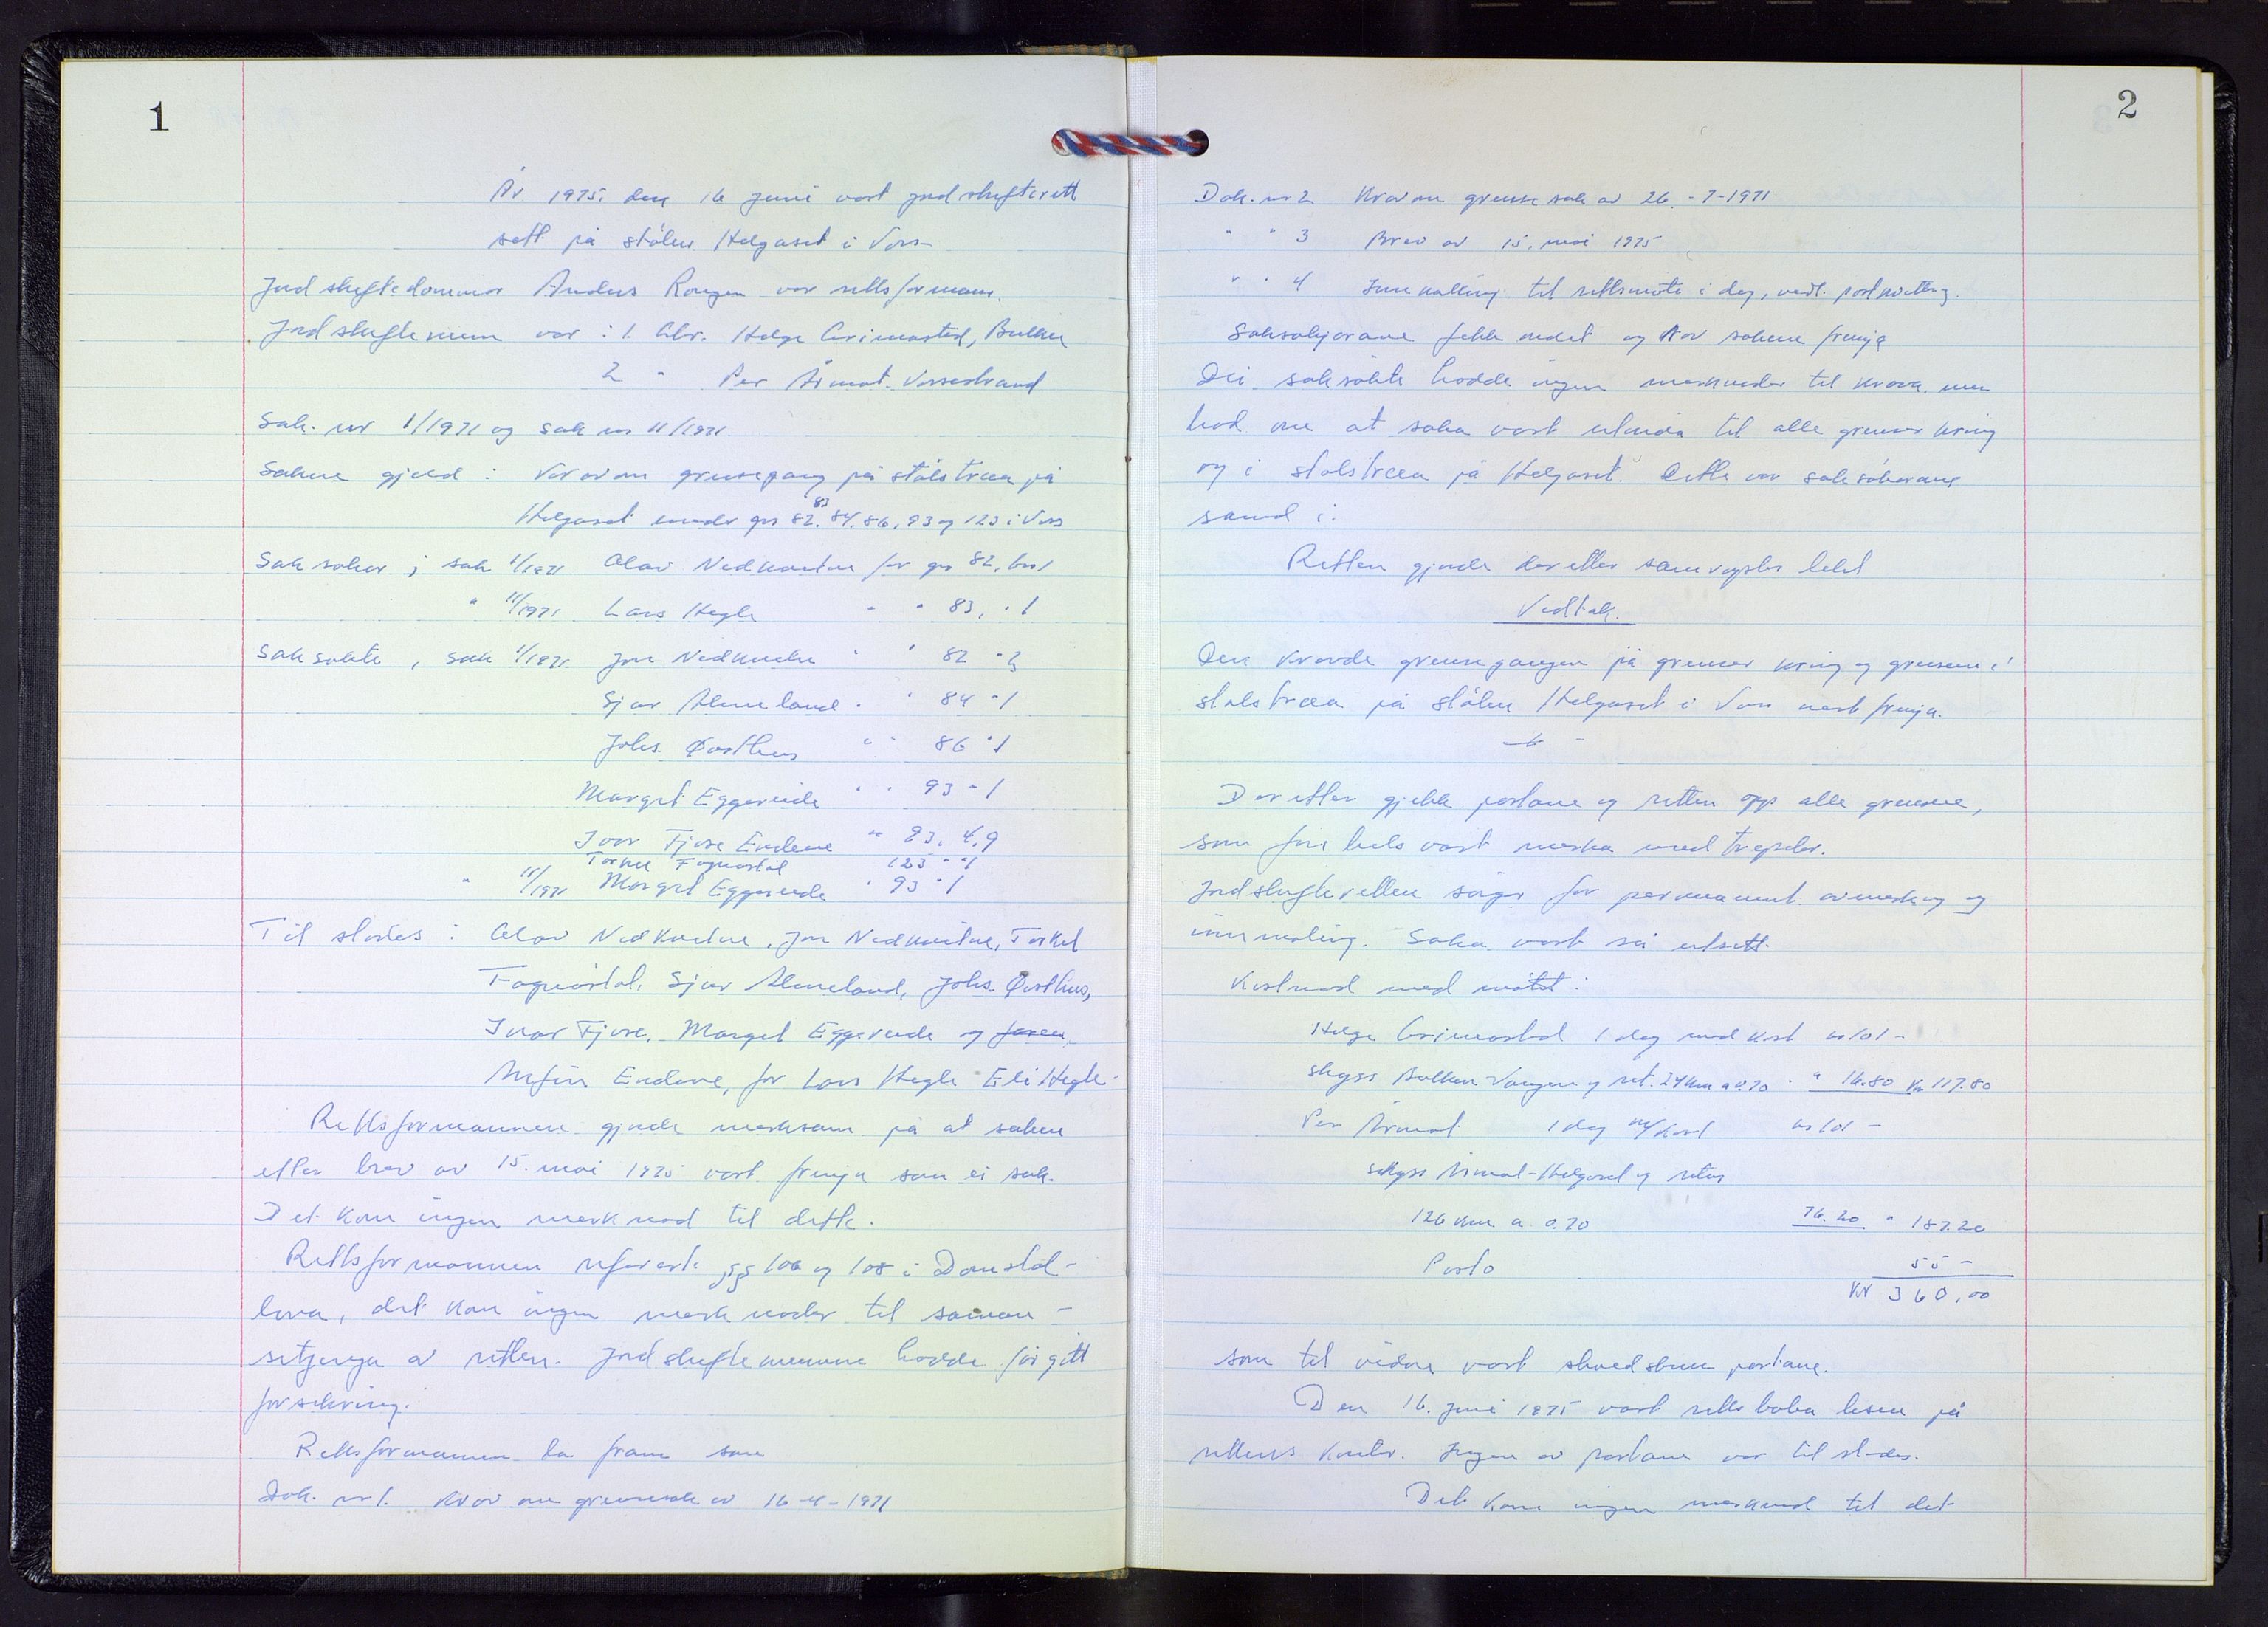 1
År 1975. den 16 juni vart jordskifterett
sett på stølen Helgaset i Voss
Jordskiftedommar Anders Rongen var rettsformann.
Jordskiftemenn var : 1. Abr. Helge Grimastad, Bulken
2 " Per Årmot. Vossestrand
Sak. nr 1/1971 og sak nr 11/1971.
Sakene gjeld : Krav om grensegang på stølstræa på
Helgaset under gnr 82. 83 84. 86, 93 og 123 i Voss
Saksøker i sak 1/1971 Olav Nedkvitne for gnr 82, bnr 1
" 11/1971 Lars Hegle " " 83, " 1
Saksøkte, sak 1/1971. Jon Nedkvitne " " 82 " 2
Sjur Almeland " " 84 " 1
Johs. Østhus " " 86 " 1
Margret Eggereide " " 93 " 1
Ivar Fjose Endeve " 83. 4.9
Torkel Fagnastøl 123 " " 1
" 11/1971 Margret Eggereide " 93 " 1
Til stades : Olav Nedkvitne, Jon Nedkvitne, Torkel
Fagnastøl, Sjur Almeland, Johs. Østhus,
Ivar Fjose. Margret Eggereide og
Endeve, for Lars Hegle Eli Hegle.
Rettsformannen gjorde merksam på at sakene
etter brev av 15. mai 1975 vart fremja som ei sak.
Det kom ingen merknad til dette.
Rettsformannen refererte §§ 106 og 108 i Domstol-
lova, det kom ingen merknader til saman-
setjinga av retten. Jordskiftemennene hadde før gitt
forsikring.
Rettsformannen la fram som
Dok. nr 1. Krav om grensesak av 16-4-1971
2
Dok. nr 2 Krav om grensesak av 26.-7-1971
" " 3 Brev av 15. mai 1975
" " 4 Innkalling til rettsmøte i dag, vedl. postkvittering.
Saksøkjarane fekk ordet og krov sakene fremja
Dei saksøkte hadde ingen merknader til krava. men
bad om at saka vart utvida til alle grenser kring
og i stølstræa på Helgaset. Dette var saksøkarane
samd i.
Retten gjorde deretter samrøystes slikt
Vedtak.
Den kravde grensegangen på grenser kring og grensene i
stølstræa på stølen Helgaset i Voss vert fremja.
Deretter gjekk partane og retten opp alle grensene,
som førebels vart merka med trepelar.
Jordskifteretten sørger for permanent avmerking og
innmåling. Saka vart så utsett.
Kostnad med møtet :
Helge Grimastad 1 dag med kost kr 101 -
skyss Bulken Vangen og ret. 24 km a 0.70 " " 16.80 kr 117.80
Per Årmot 1 dag m/kost kr 101 -
skyss Årmot-Helgaset og retur
126 km a 0.70 76.20 " 187.20
Porto 55 -
kr 360,00
som til vidare vart
Den 16. juni 1975 vart rettsboka lesen på
rettens kontor. Ingen av partane var til stades.
Det kom ingen merknad til det